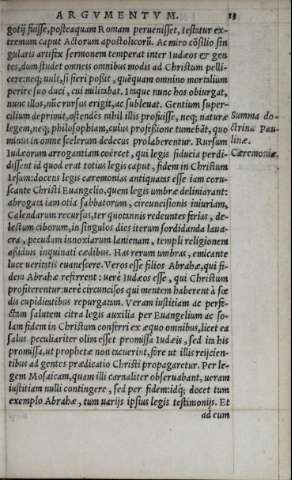 ARGVMENTVM. 13
gotij fuisse, posteaquam Romam peruenisset, testatur ex-
tremum caput Actorum apostolicorũ. Ac miro cõsilio sin
gularis artifex sermonem temperat inter Iudæos & gen
tes, dum studet omneis omnibus modis ad Christum pelli-
cere: neq; uult, si fieri posßit, quẽquam omnino mortalium
perire suo duci, cui militabat. Itaque nunc hos obiurgat,
nunc illos, nũc rursus erigit, ac subleuat. Gentium super-
cilium deprimit, ostendẽs nihil illis profuisse, neq; naturæ
legem, neq; philosophiam, cuius profesßione tumebãt, quo
minus in omne scelerum dedecus prolaberentur. Rursum
Iudæorum arrogantiam coërcet, qui legis fiducia perdi-
dissent id quod erat totius legis caput, fidem in Christum
Iesum: docens legis cæremonias antiquatas esse iam coru-
scante Christi Euangelio, quem legis umbræ deliniarant:
abrogata iam otia sabbatorum, circuncisionis iniuriam,
Calendarum recursus, ter quotannis redeuntes ferias, de-
lectum ciborum, in singulos dies iterum sordidanda laua-
cra, pecudum innoxiarum lanienam, templi religionem
asßiduis inquinati cædibus. Has rerum umbras, emicante
luce ueritatis euanescere. Veros esse filios Abrahæ, qui fi-
dem Abrahæ referrent: uerè Iudæos esse, qui Christum
profiterentur: uerè circuncisos qui mentem haberent à fœ
dis cupiditatibus repurgatam. Veram iustitiam ac perfe-
ctam salutem citra legis auxilia per Euangelium ac so-
lam fidem in Christum conferri ex æquo omnibus, licet ea
salus peculiariter olim esset promissa Iudæis, sed in his
promissa, ut prophetæ non tacuerint, fore ut illis reijcien-
tibus ad gentes prædicatio Christi propagaretur. Per le-
gem Mosaicam, quam illi carnaliter obseruabant, ueram
iustitiam nulli contingere, sed per fidem: idq; docet tum
exemplo Abrahæ, tum uarijs ipsius legis testimonijs. Et
ad eum
Summa do-
ctrinæ Pau
linæ.
Cæremoniæ.